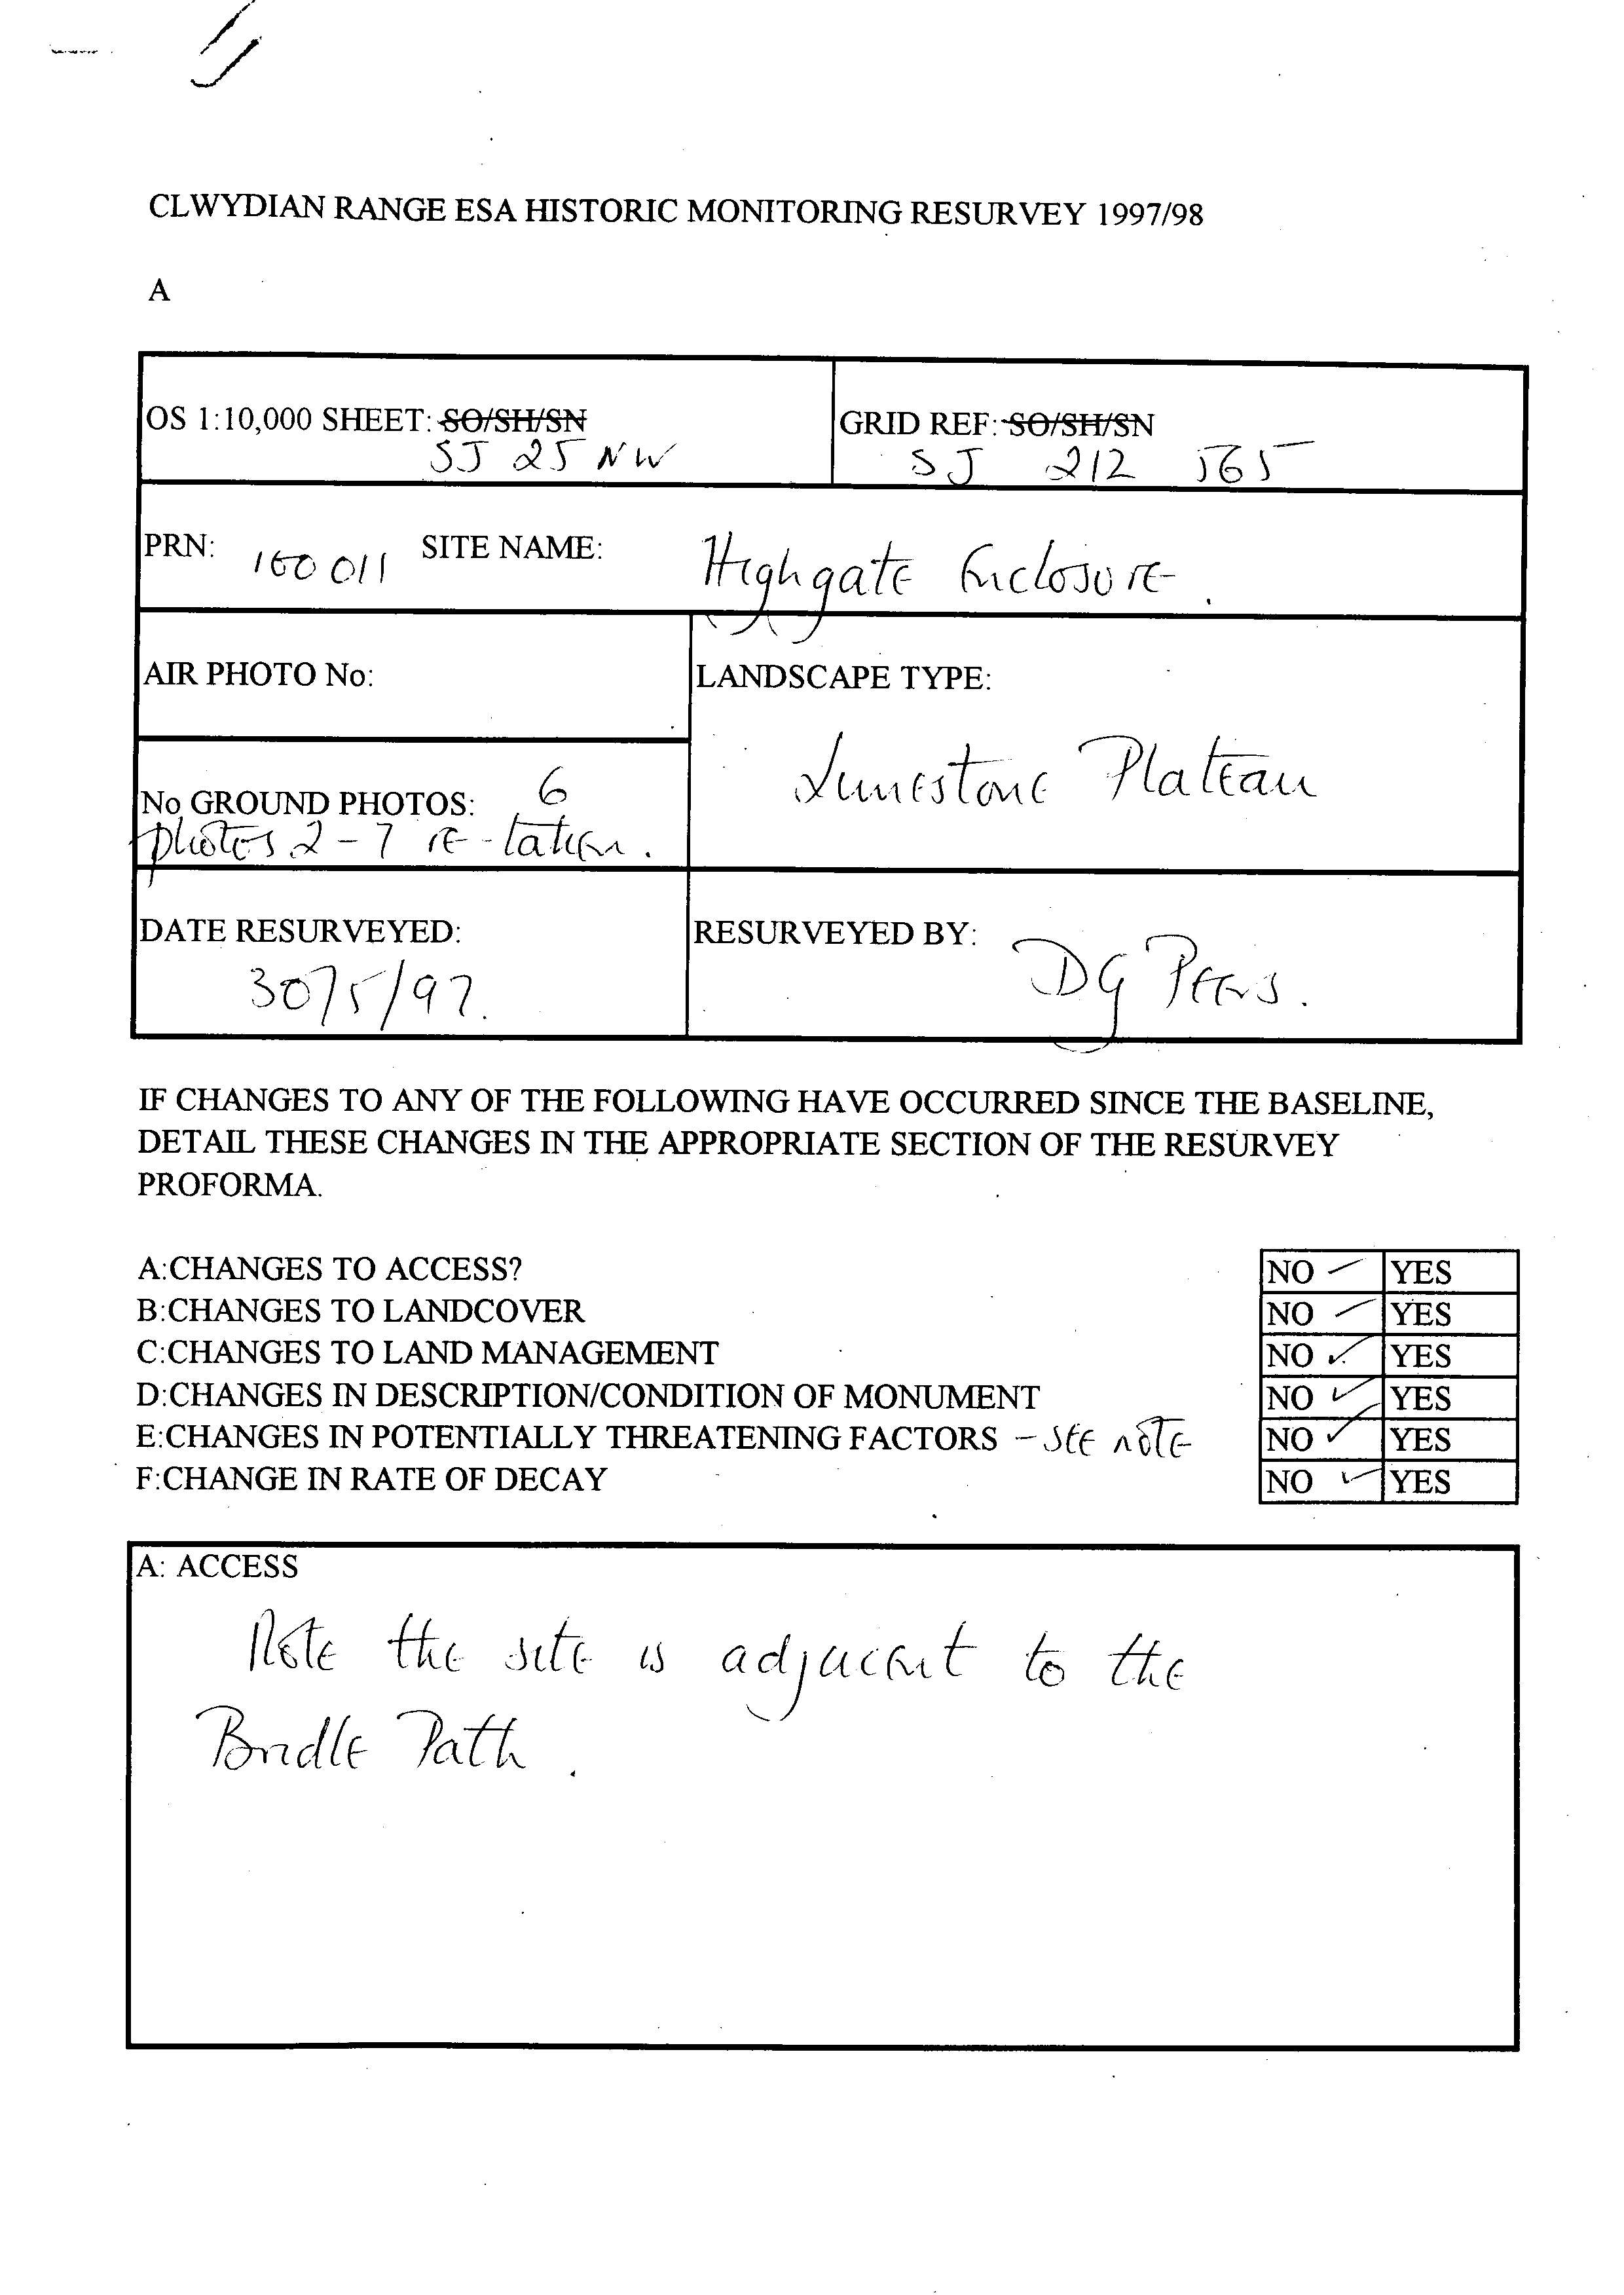 CLWYDIAN RANGE ESA HISTORIC MONITORING RESURVEY 1997/98
A
OS 1:10,000 SHEET: SO/SH/SN
SJ 25 NW
GRID REF: SO/SH/SN
SJ 212 565
PRN: 100011 SITE NAME: Highgate Enclosure.
AIR PHOTO No:
LANDSCAPE TYPE:
Limestone Plateau
No GROUND PHOTOS: 6
photos 2-7 re-taken.
DATE RESURVEYED:
30/5/97.
RESURVEYED BY: DG Peers.
IF CHANGES TO ANY OF THE FOLLOWING HAVE OCCURRED SINCE THE BASELINE,
DETAIL THESE CHANGES IN THE APPROPRIATE SECTION OF THE RESURVEY
PROFORMA.
A:CHANGES TO ACCESS? NO YES
B:CHANGES TO LANDCOVER NO YES
C:CHANGES TO LAND MANAGEMENT NO ✓ YES
D:CHANGES IN DESCRIPTION/CONDITION OF MONUMENT NO ✓ YES
E:CHANGES IN POTENTIALLY THREATENING FACTORS - see note NO ✓ YES
F:CHANGE IN RATE OF DECAY NO ✓ YES
A: ACCESS
Note the site is adjacent to the
Bridle Path.